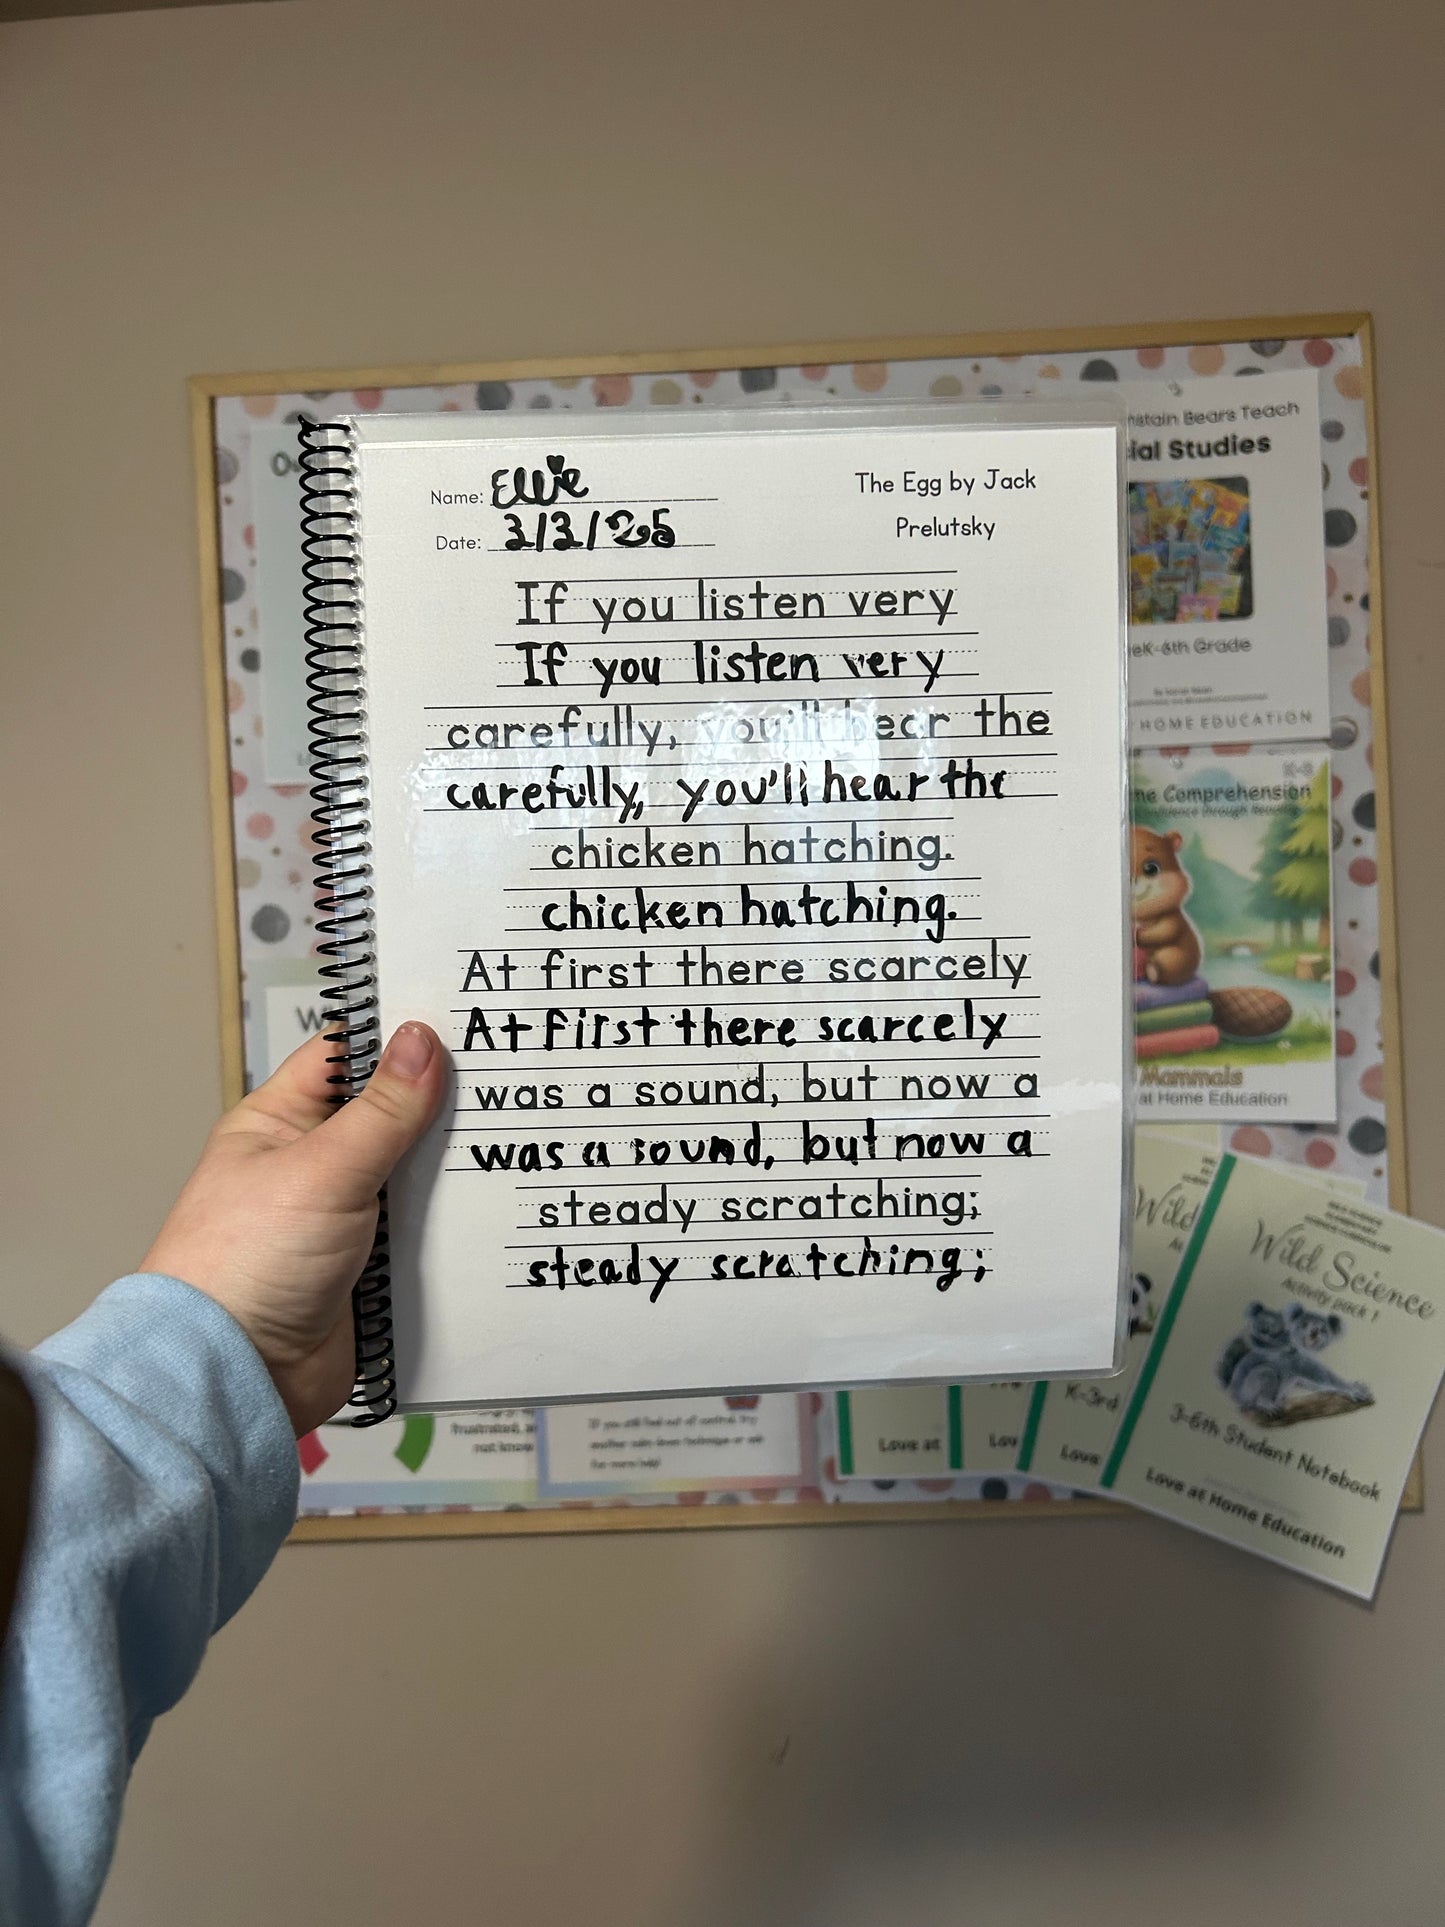 Name: Ellie
Date: 3/3/25
The Egg by Jack
Prelutsky
If you listen very
If you listen very
carefully, you'll hear the
carefully, you'll hear the
chicken hatching.
chicken hatching.
At first there scarcely
At first there scarcely
was a sound, but now a
was a sound, but now a
steady scratching;
steady scratching;
Bears Teach
Studies
6th Grade
HOME EDUCATION
K-3
Comprehension
Mammals
at Home Education
Wild
K-3rd
Love at
Love
Wild Science
Activity pack 1
3-6th Student Notebook
Love at Home Education
frustrated,
not know
If you still feel out of control, try
another calm down technique or ask
for more help!